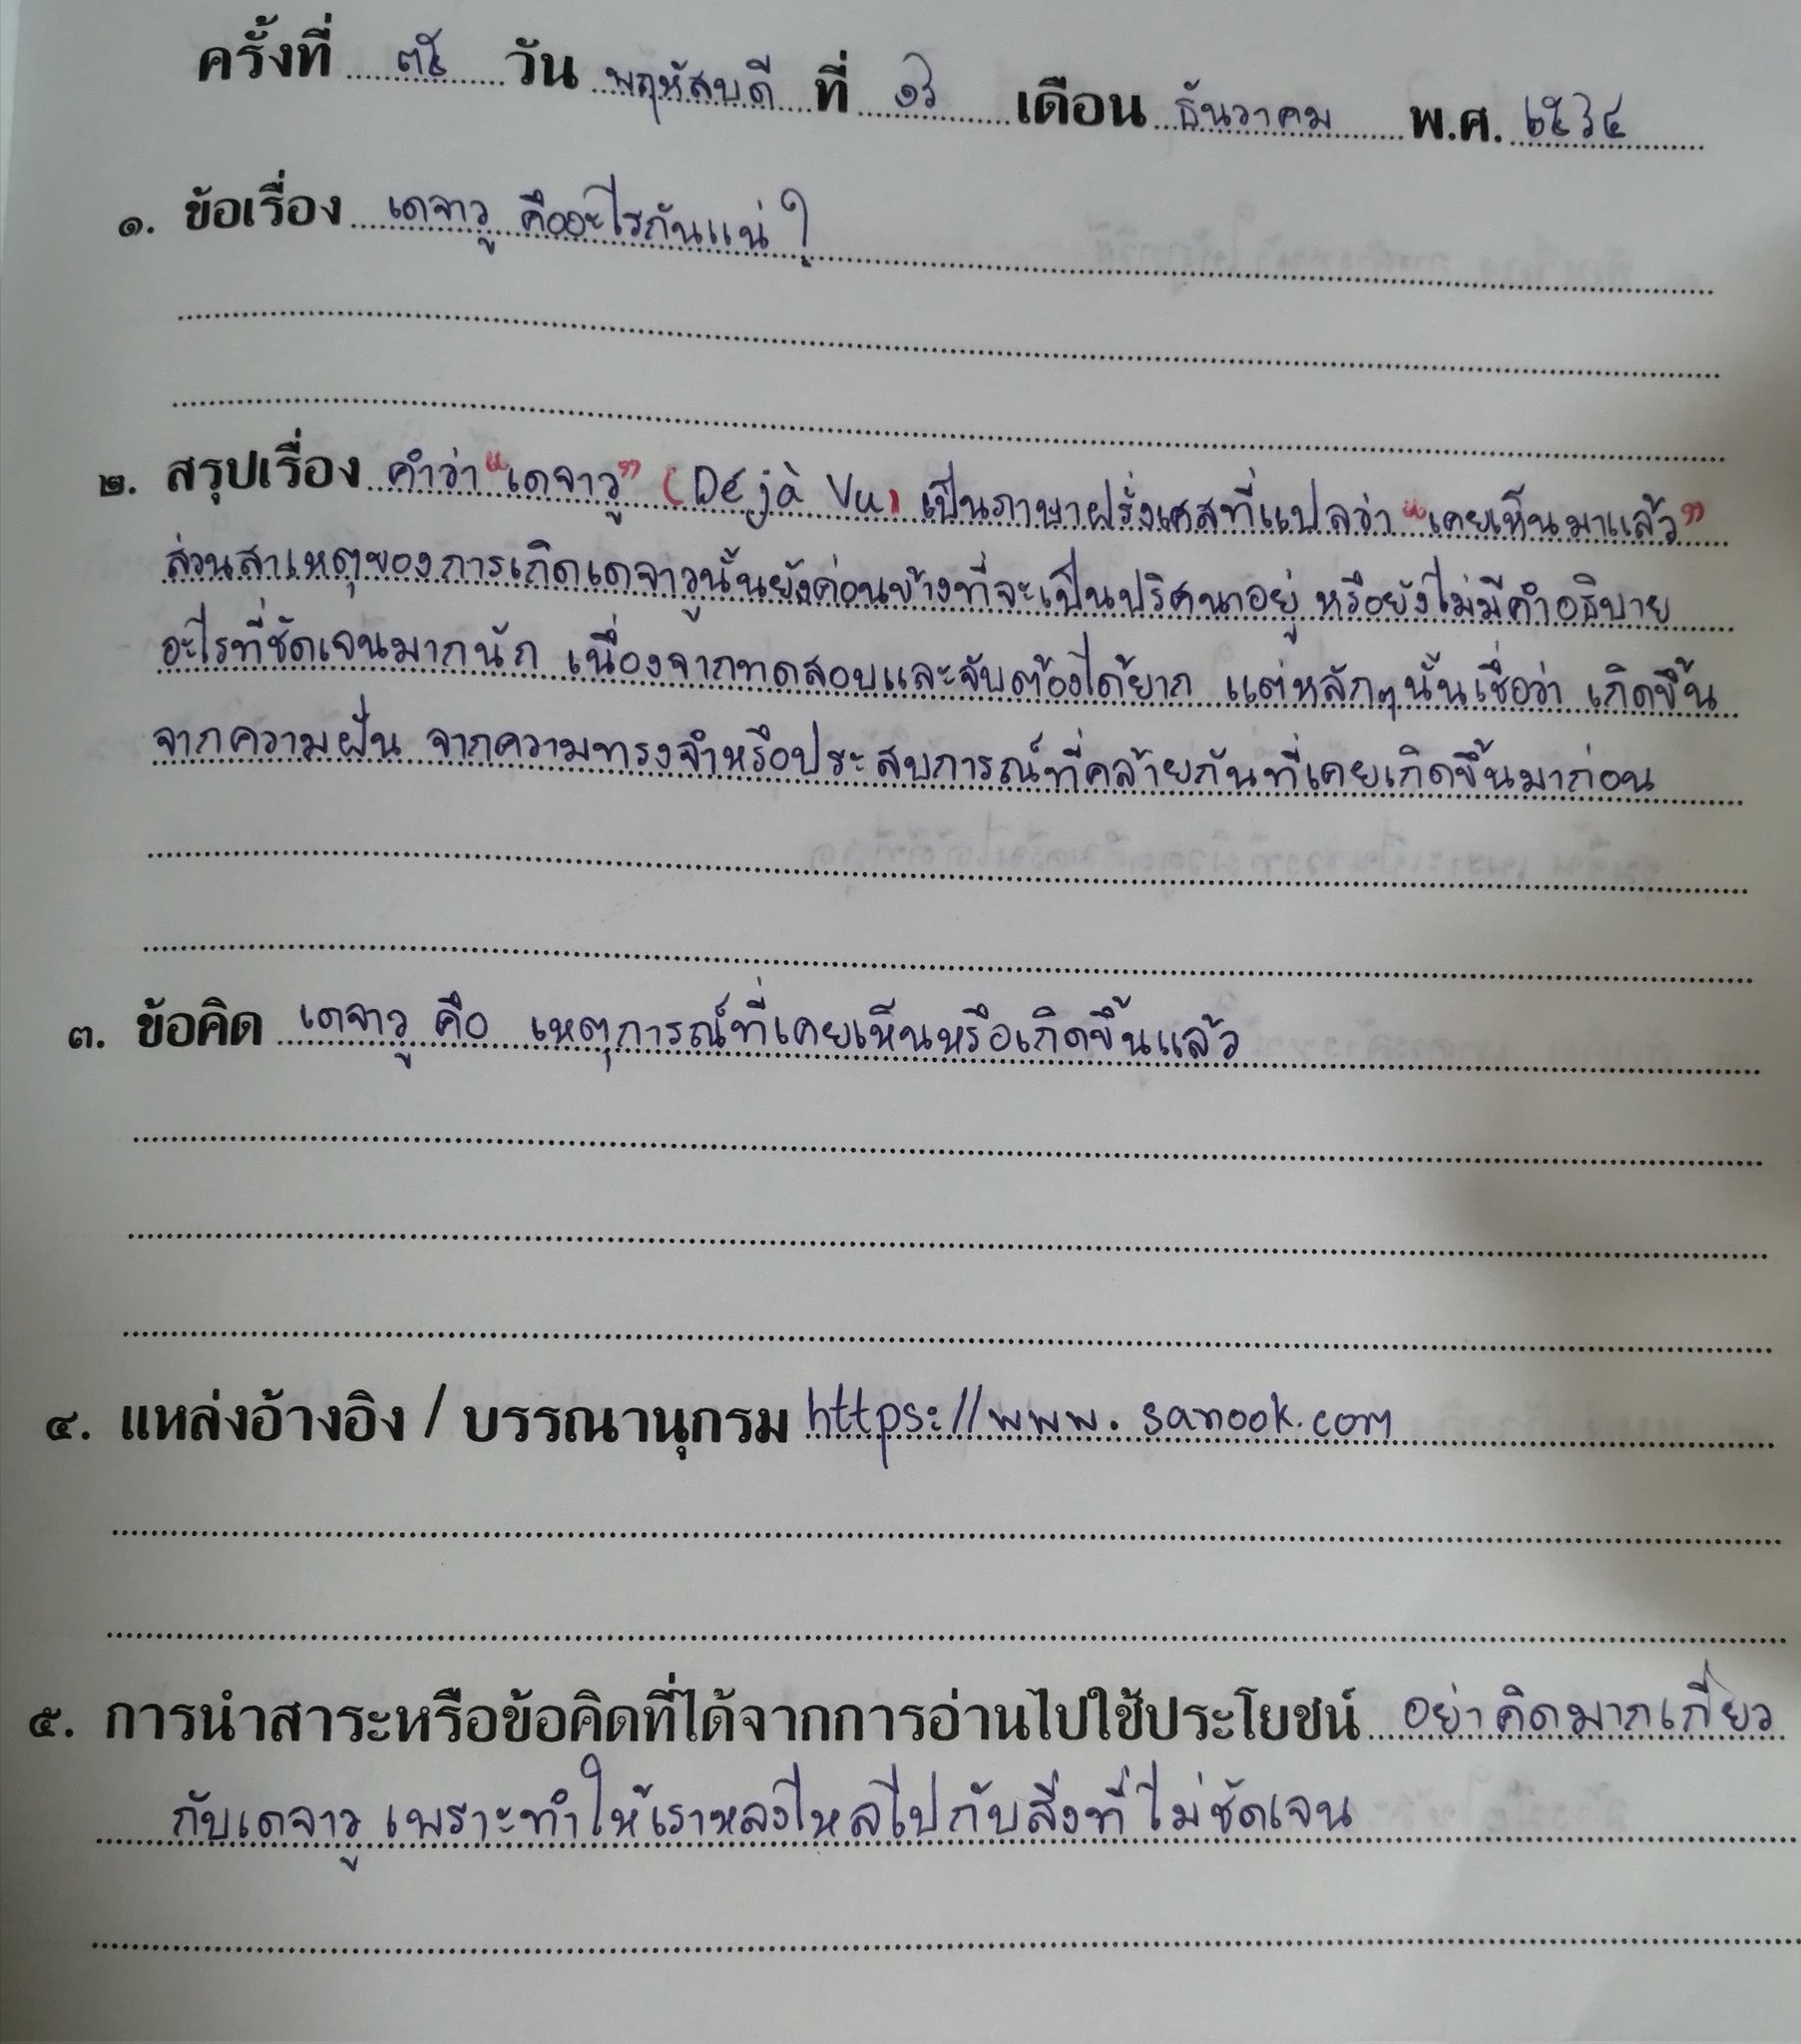 ครั้งที่ ๓๕ วัน พฤหัสบดี ที่ ๑๖ เดือน ธันวาคม พ.ศ. ๒๕๖๔
๑. ข้อเรื่อง เดจาวู คืออะไรกันแน่ ?
๒. สรุปเรื่อง คำว่า "เดจาวู" (Déjà Vu) เป็นภาษาฝรั่งเศสที่แปลว่า "เคยเห็นมาแล้ว"
ส่วนสาเหตุของการเกิดเดจาวูนั้นยังค่อนข้างที่จะเป็นปริศนาอยู่ หรือยังไม่มีคำอธิบาย
อะไรที่ชัดเจนมากนัก เนื่องจากทดสอบและจับต้องได้ยาก แต่หลักๆนั้นเชื่อว่า เกิดขึ้น
จากความฝัน จากความทรงจำหรือประสบการณ์ที่คล้ายกันที่เคยเกิดขึ้นมาก่อน
๓. ข้อคิด เดจาวู คือ เหตุการณ์ที่เคยเห็นหรือเกิดขึ้นแล้ว
๔. แหล่งอ้างอิง / บรรณานุกรม https://www.sanook.com
๕. การนำสาระหรือข้อคิดที่ได้จากการอ่านไปใช้ประโยชน์ อย่าคิดมากเกี่ยว
กับเดจาวู เพราะทำให้เราหลงไหลไปกับสิ่งที่ไม่ชัดเจน